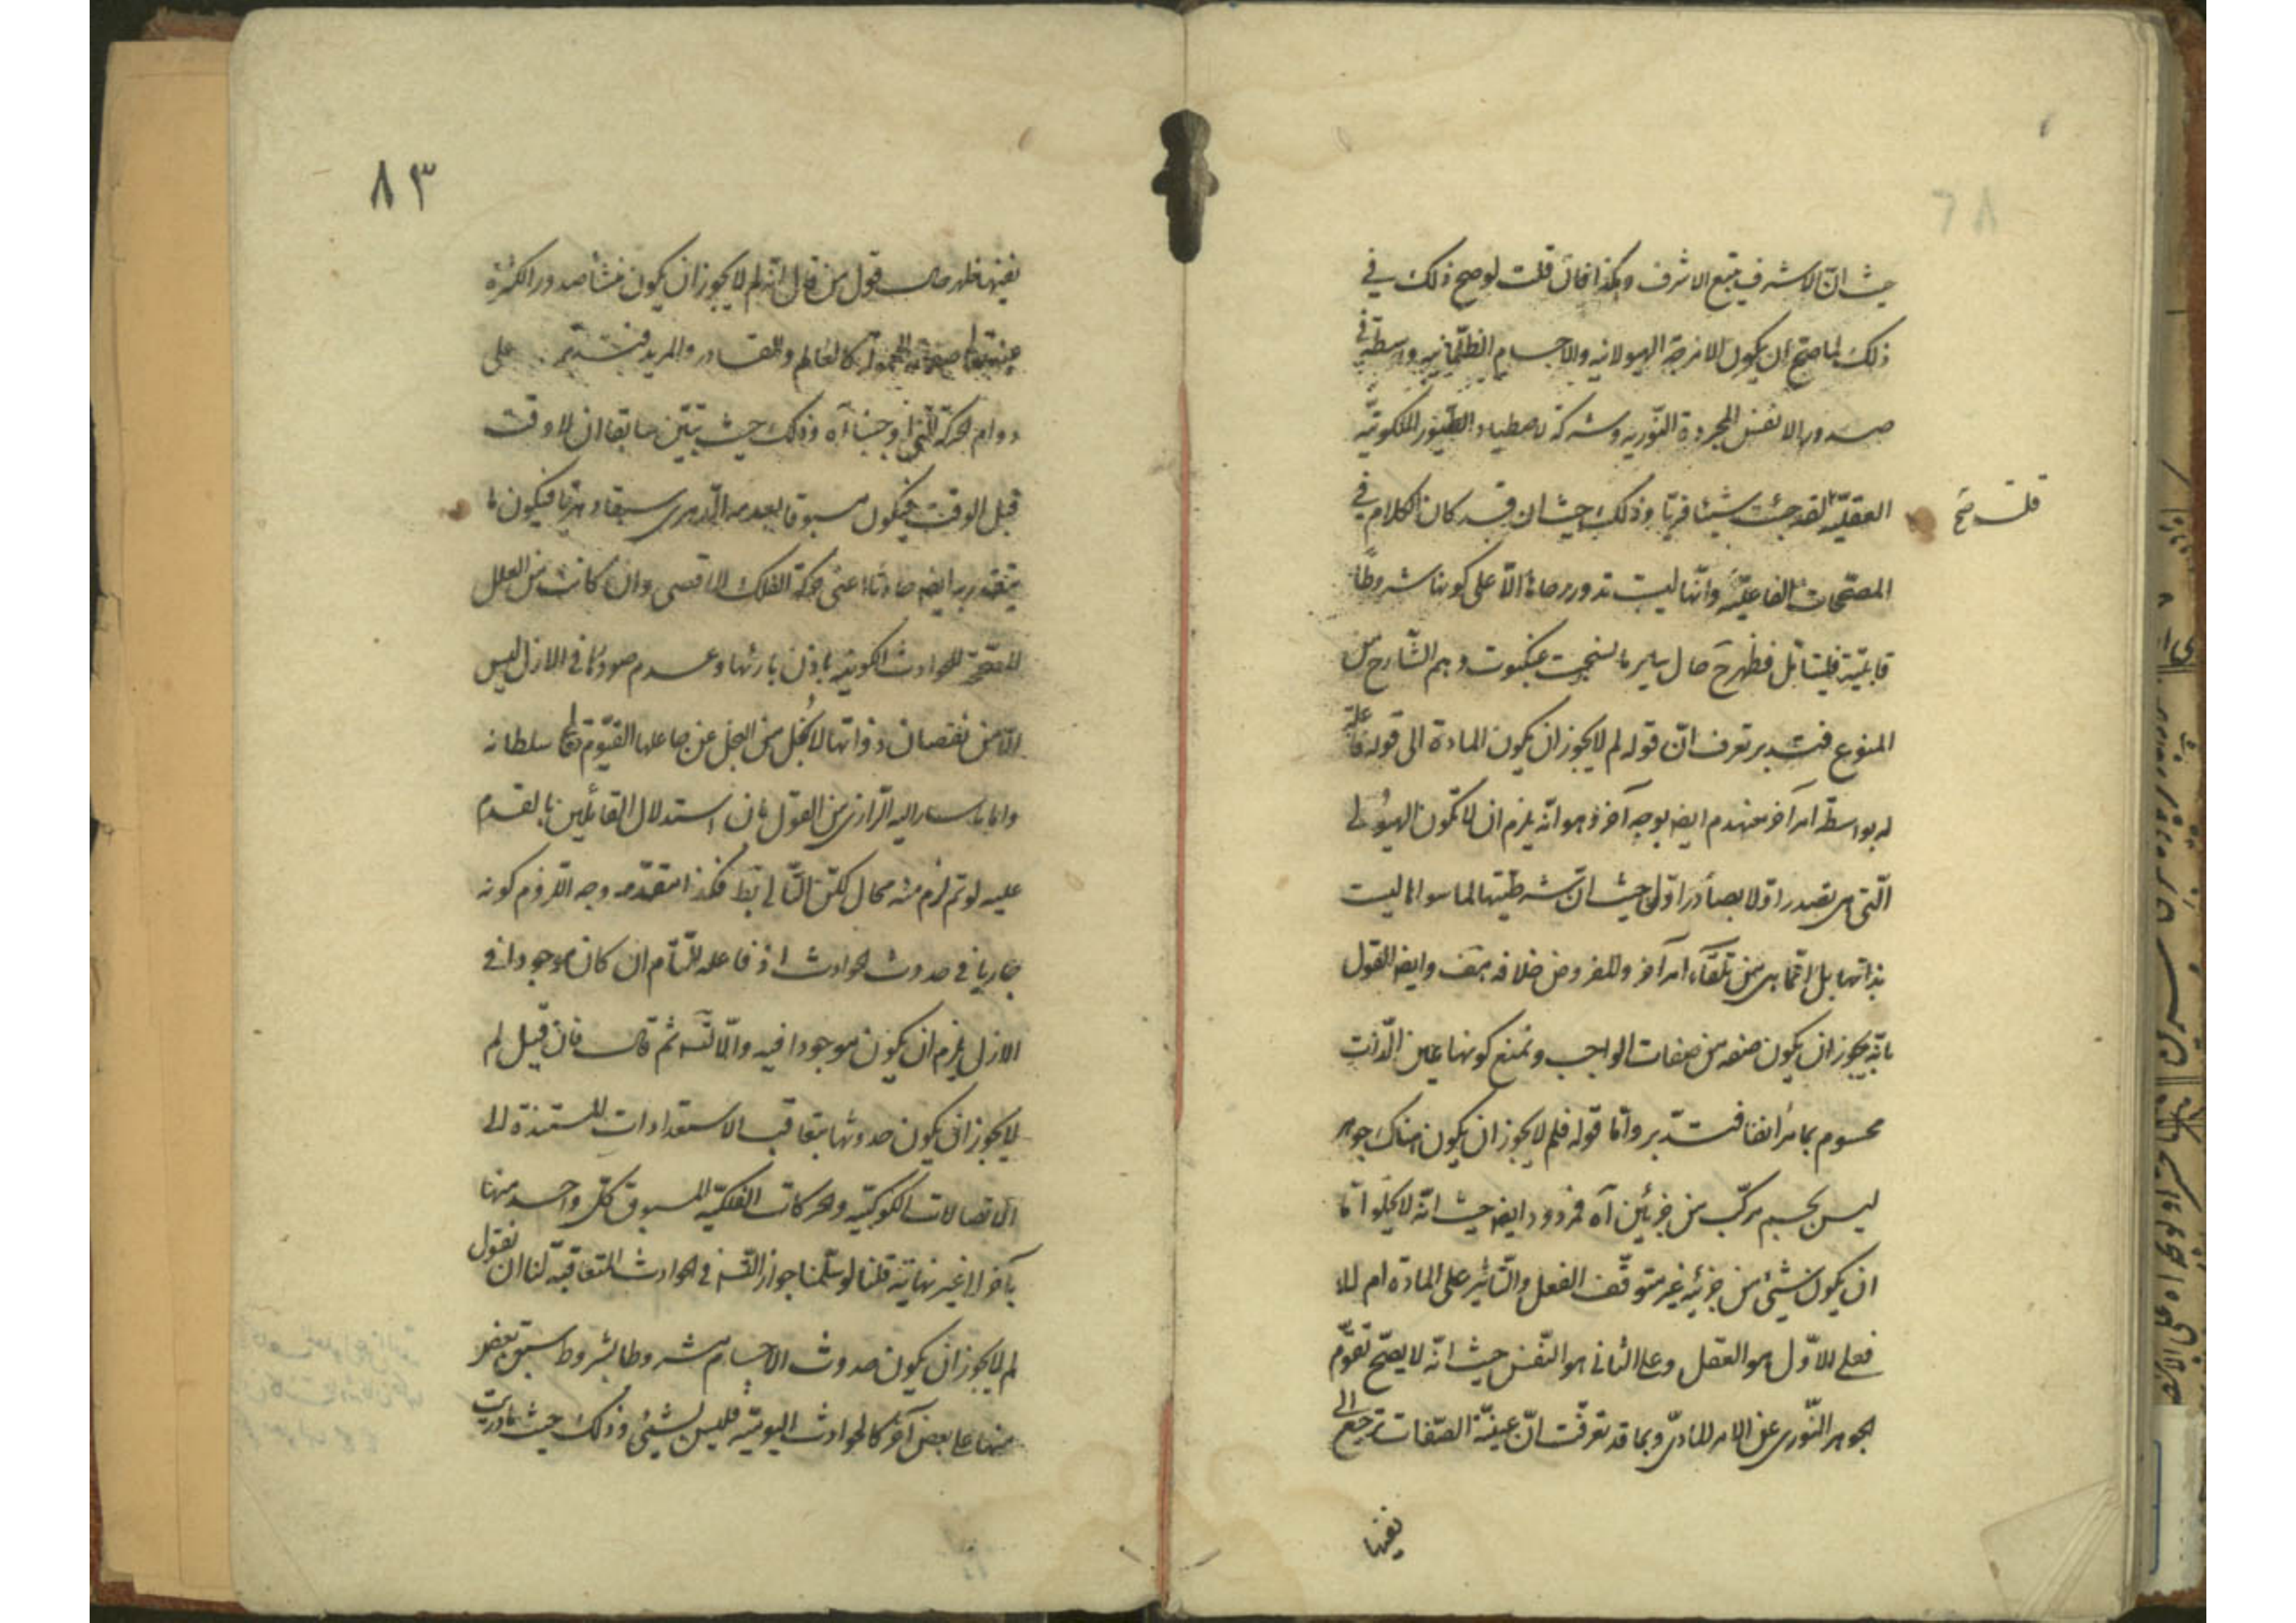 حيث انّ الاشرف يتبع الاشرف وهكذا فان قلت لو صح ذلك في
ذلك لما صحّ ان يكون الامزجة الهيولانيه والاجسام الظلمانيه واسطة في
صدورها الانفس المجردة النّوريه وشركة لاصطياد الطّيور الملكوتيّه
العقليّه لقد جئت شيئا فريّا وذلك حيث ان قد كان الكلام في
قلت صح
المصحّحات الفاعليّه وانّها ليست تدور رحاها الّا على كونها شروطاً
قابليّة فليتأمل فظهر ح حال ساير ما نسجت عنكبوت وهم الشّارح من
المنوع فتدبر تعرف انّ قوله لم لا يجوز ان يكون المادة الى قوله فاعليّة
له بواسطة امر آخر منهدم ايضا بوجه آخر وهو انّه يلزم ان لا تكون الهيولى
الّتي هي تصدر اوّلا بصادر اوّل حيث انّ شرطيّتها لما سواها ليست
بذاتها بل انّما هي من تلقاء امر آخر والمفروض خلافه هف وايضا القول
بانّه يجوز ان يكون صفه من صفات الواجب ونمنع كونها عين الذّات
محسوم بما مرّ انفا فتدبّر وامّا قوله فلم لا يجوز ان يكون هناك جوهر
ليس بجسم مركّب من جزئين آه فمردود ايضا حيث انّه لا يخلو امّا
ان يكون شيئ من جزئيه غير متوقّف الفعل والتّاثير على المادة ام لا
فعلى الاوّل هو العقل وعلى الثاني هو النّفس حيث انّه لا يصحّ تقوّم
الجوهر النّوري عن الامر المادىّ وبما قد تعرّفت انّ عينيّة الصّفات ترجع الى
نفيها
٨٣
نفيها ظهر حال قول من قال انّه لم لا يجوز ان يكون منشأ صدور الكثرة
عنه تعالى صفاته كالعالم والقادر والمريد فتدبّر على
دوام الحركة اوجبنا آه وذلك حيث تبيّن سابقا ان لا وقت
قبل الوقت فيكون مسبوقا بعدمه الدّهرى سبقا دهريّا فيكون ما
يتقدر به ايضا حادثا اعنى حركة الفلك الاقصى وان كانت من العلل
المصحّحة للحوادث الكونيّه باذن بارئها وعدم صدورها في الازل ليس
الّا من نقصان ذواتها لا لبخل من البخل عن جاعلها القيّوم تعالى سلطانه
واما ما سار اليه الرّازى من القول بان استدلال القائلين بالقدم
عليه لو تم لزم منه محال لكنّ التّالى بط فكذا المقدّم وجه اللزوم كونه
جاريا في حدوث الحوادث اذ فاعله التّام ان كان موجودا في
الازل يلزم ان يكون موجودا فيه والّا لتسّ ثم قال فان قيل لم
لا يجوز ان يكون حدوثها بتعاقب الاستعدادات المستندة الى
الاتصالات الكوكبيّه والحركات الفلكيّه المسبوق كلّ واحد منها
بآخر الى غير نهاية قلنا لو سلّمنا جواز التّسّ في الحوادث المتعاقبة لنا ان نقول
لم لا يجوز ان يكون حدوث الاجسام مشروطا بشروط سبق بعض
منها على بعض آخر كالحوادث اليوميّه فليس بشيئ وذلك حيث ما دريت